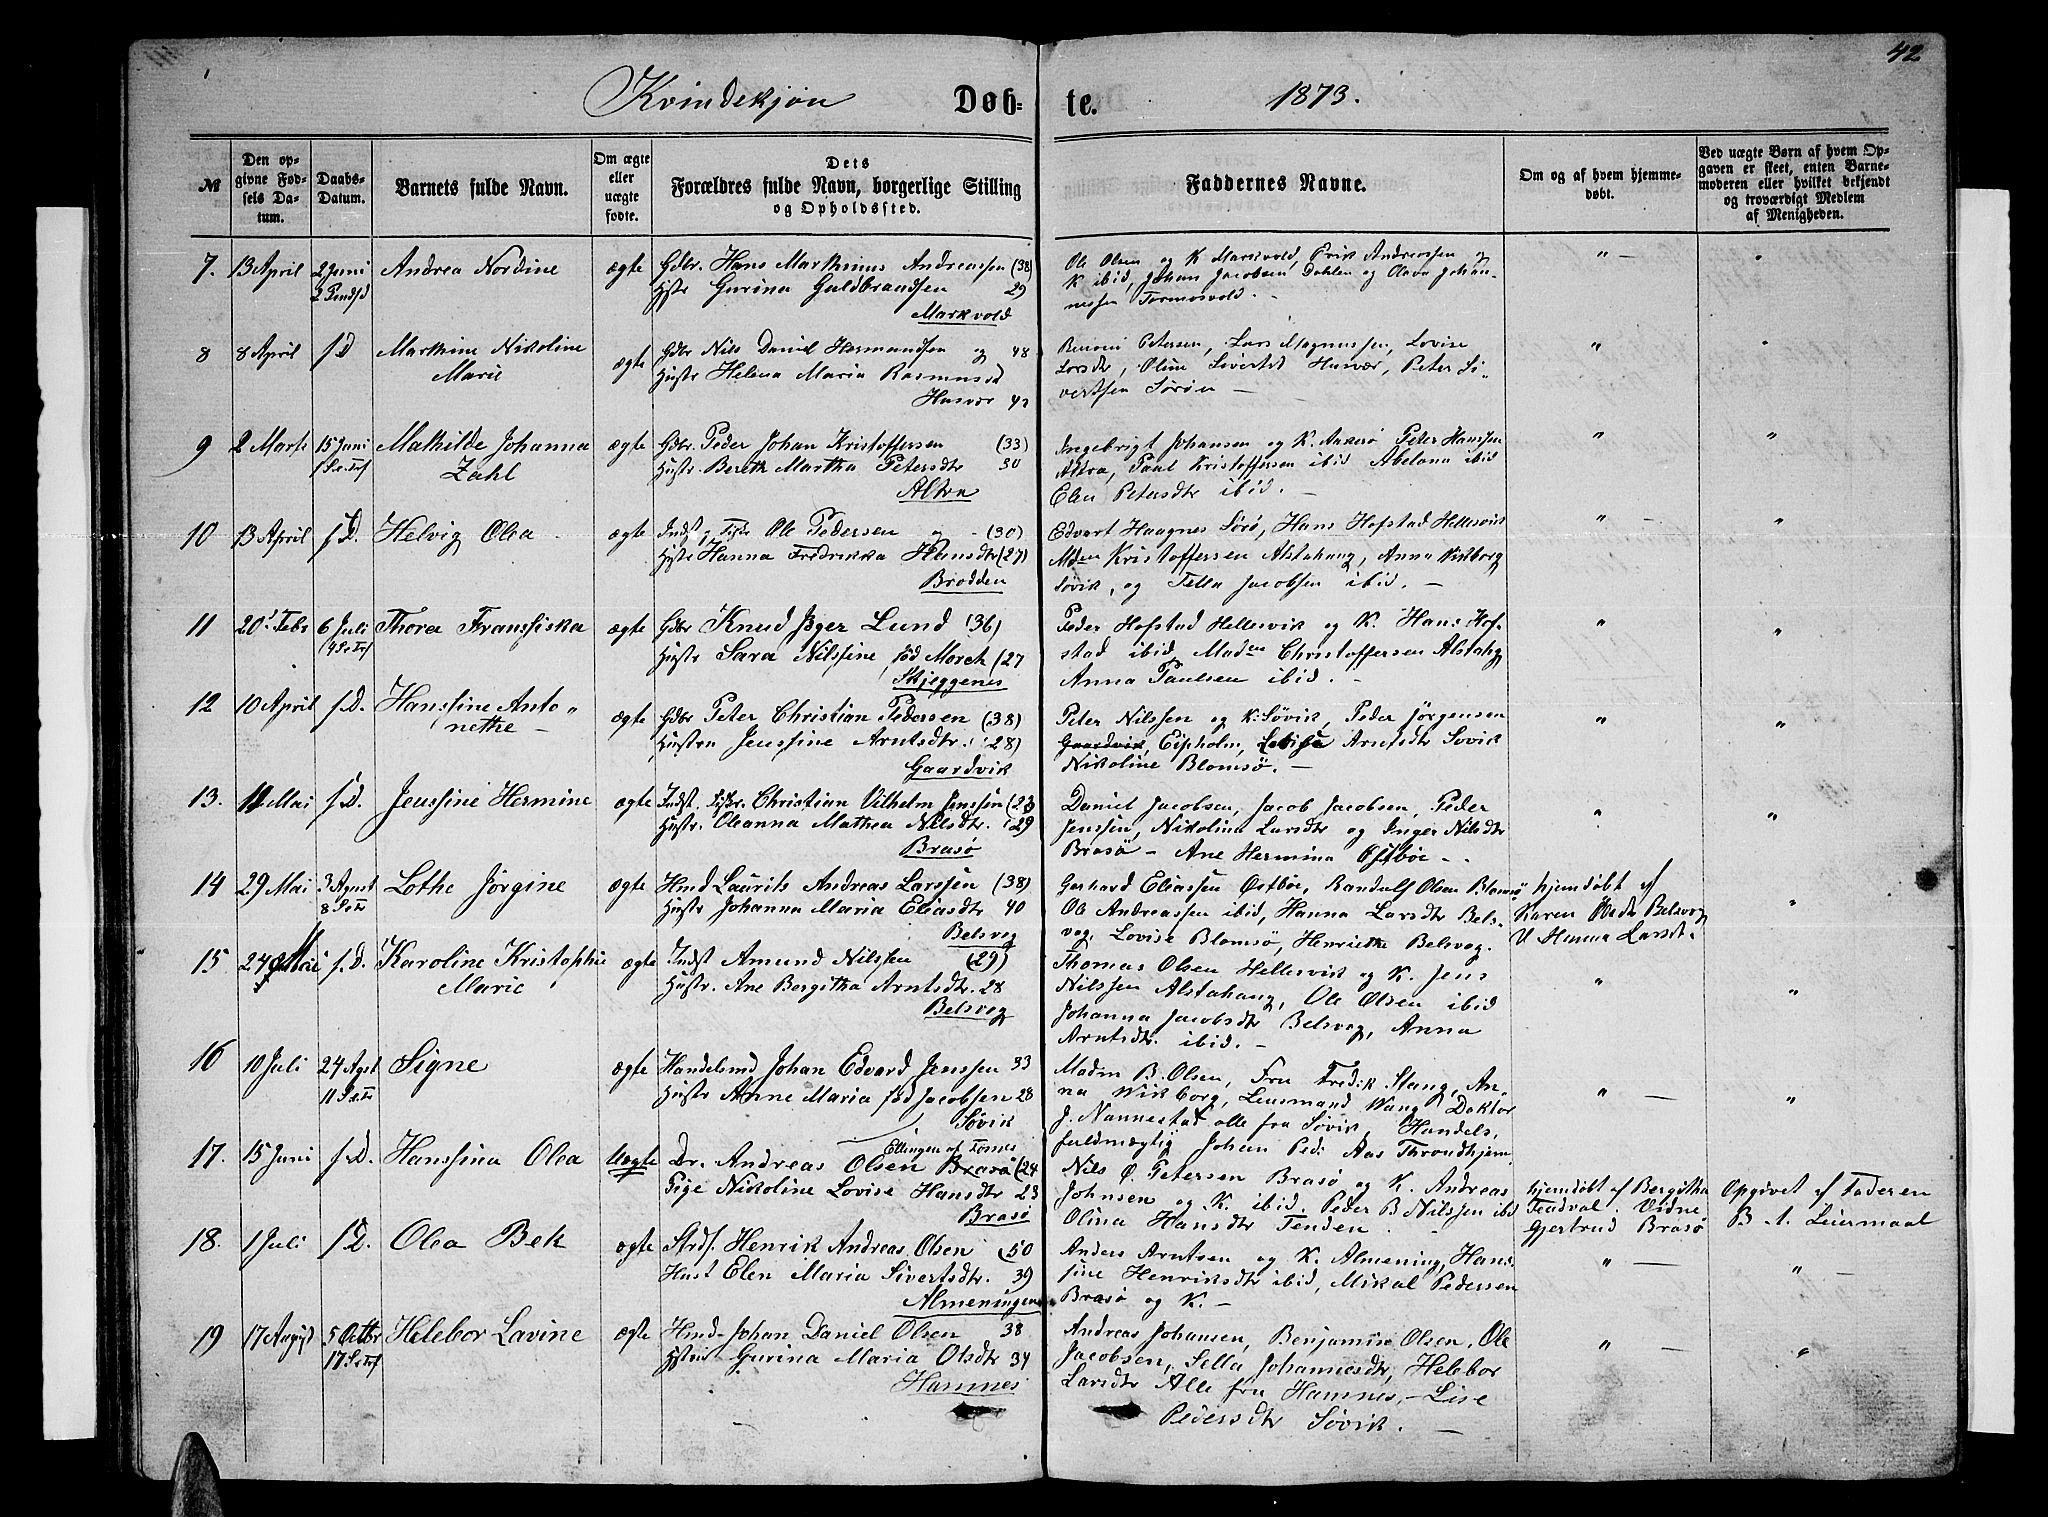 42
Kvindekjøn Døb- te. 1873.
№
Den op-
givne Fød-
sels Da-
tum.
Daabs-
Datum.
Barnets fulde Navn.
Om ægte
eller
uægte
fødte.
Dets
Forældres fulde Navn, borgerlige Stilling
og Opholdssted.
Faddernes Navne.
Om og af hvem hjemme-
døbt.
Ved uægte Børn af hvem Op-
gaven er skeet, enten Barne-
moderen eller hvilket bekjendt
og troværdigt Medlem
af Menigheden.
7. 13 April 2 Juni Andrea Nordine ægte Gdbr. Hans Marthinus Andreassen (38)
2 Pindsd
Hstr Gurina Guldbrandsen 29
Markvold
Ole Olsen og K Markvold, Erik Andreassen og
K ibid, Johan Jacobsen Dahlen og Olava Johan-
nessen Tormosvold. -
" - "
8 8 April s.D Marthine Nikoline
Marie
ægte Gdbr Nils Daniel Hermandsen og 48
Hustr Helena Maria Rasmusd
Husvær 42
Petersen, Lars Magnussen, Lovise
Larsdtr, Oline Sivertsd Husvær, Peter Si-
vertsen Sørøen -
" "
9 2 Marts 15 Juni Mathilde Johanna
Zahl
ægte Gdbr. Peder Johan Kristoffersen (33)
Hustr. Bereth Martha Petersdtr 30
Altra
Ingebrigt Johansen og K. Aakerø Peter Hanssen
Altra, Paul Kristoffersen ibid Abelona ibid
Elen Petersdtr ibid. -
" "
10 13 April s.D. Helvig Olea ægte Indst, Fisk Ole Pedersen og - (30)
Hstr Hanna Fredrikka Hansdtr (27)
Brodden
Edvart Haagnes Sørø, Hans Hofstad Hellesvik
Mden Kristoffersen Alstahaug, Anna Vikborg
Søvik, og Tella Jacobsen ibid. -
" - "
11 20 Febr 6 Juli Thora Fransiska ægte Gdbr Knud Jæger Lund (36)
Hustr Sara Nilssineød Morch (27
Skjeggenes
Peder Hofstad Hellesvik og K. Hans Hof-
stad ibid, Maden Christoffersen Alstahg
Anna Paulsen ibid. -
" "
12 10 April s.D. Hanssine Anto-
nethe -
ægte Gdbr Peter Christian Pedersen (38)
Hustru Jenssine Arntsdtr. (28)
Gaardvik
Peter Nilssen og K. Søvik, Peder Jørgensen
Gaardvik, Eipholm, Lovise Arntsdtr Sovik
Nikoline Blomsø. -
" "
13. 11 Mai s.D. Jenssine Hermine ægte Indst. Fiskr. Christian Vilhelm Jenssen (23
Hustr. Oleanna Mathea Nilsdtr. (29
Brasø
Daniel Jacobsen, Jacob Jacobsen, Peder
Jenssen, Nikolina Larsdtr og Inger Nilsdtr
Brasø - Ane Hermina Østbøe -
" "
14 29 Mai 3 Agust Lothe Jørgine ægte Hmd Laurits Andreas Larssen (38)
8 S e Tr
Hustr Johanna Maria Eliasdtr 40
Belsvag
Gerhard Eliassen Østbøe, Randulf Olsen Blomsø
Ole Andreassen ibid, Hanna Larsdtr Bels-
vag, Lovise Blomsø, Henriethe Belsvag.
hjemdøbt af
Karen Belsvag
V Hanna Larsdt.
"
15 24 Mai s.D. Karoline Kristophie
Marie
ægte Indst Amund Nilssen (29)
Hustr. Ane Bergitha Arntsdtr. 28
Belsvag
Thomas Olsen Hellesvik og K. Jens
Nilssen Alstahaug, Ole Olsen ibid
Johanna Jacobsdtr Belsvag, Anna
Arntsdtr. ibid. -
" "
16 10 Juli 24 Agst Signe ægte Handelsmd Johan Edvard Jenssen 33
11 S e Tr
Hustr Anne Maria fød Jacobsen 28
Søvik
Madm B. Olsen, Fru Fredrik Stang, An-
na Wikborg, Lensmand Wang, Doktor
J. Nannestad alle fra Søvik, Handels-
fuldmægtig Johan Ped: Aas Throndhjem
" - "
17. 15 Juni s.D. Hanssina Olea Uægte Dr. Andreas Olsen Brasø (24
Ellingen af Tornes
Pige Nikoline Lovise Hansdtr 23
Brasø
Nils Ø. Petersen Brasø og K. Andreas
Johnsen og K. ibid. Peder B Nilssen ibid
Olina Hansdtr Tenden
hjemdøbt af Bergitha
Tendval. Vidne
Gjertrud Brasø
Opgivet af Faderen
18. 1 Juli s.D. Olea Bek ægte Strds. Henrik Andreas Olsen (50
Hust Elen Maria Sivertsdtr. 39
Almeningen
Anders Arntsen og K. Almening, Hans-
sine Henriksdtr ibid, Mikal Pedersen
Brasø og K. -
" - " -
19 17 August 5 Octbr Helebor Lavine ægte Hmd. Johan Daniel Olsen 38
17 S e Tr
Hstru Gurina Maria Olsdtr 34
Hamnes
Andreas Johansen, Benjamin Olsen, Ole
Jacobsen, Sella Johannesdtr, Helebor
Larsdtr Alle fra Hamnes, - Lise
Pedersdtr Søvik. -
" - "